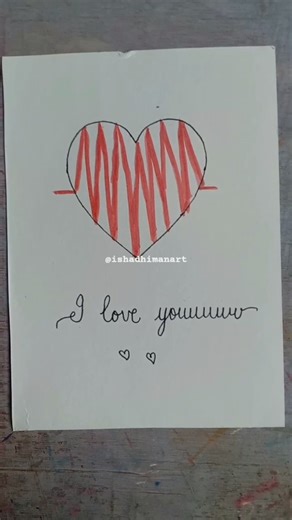 @ishadhimanart
I love youuuuuu